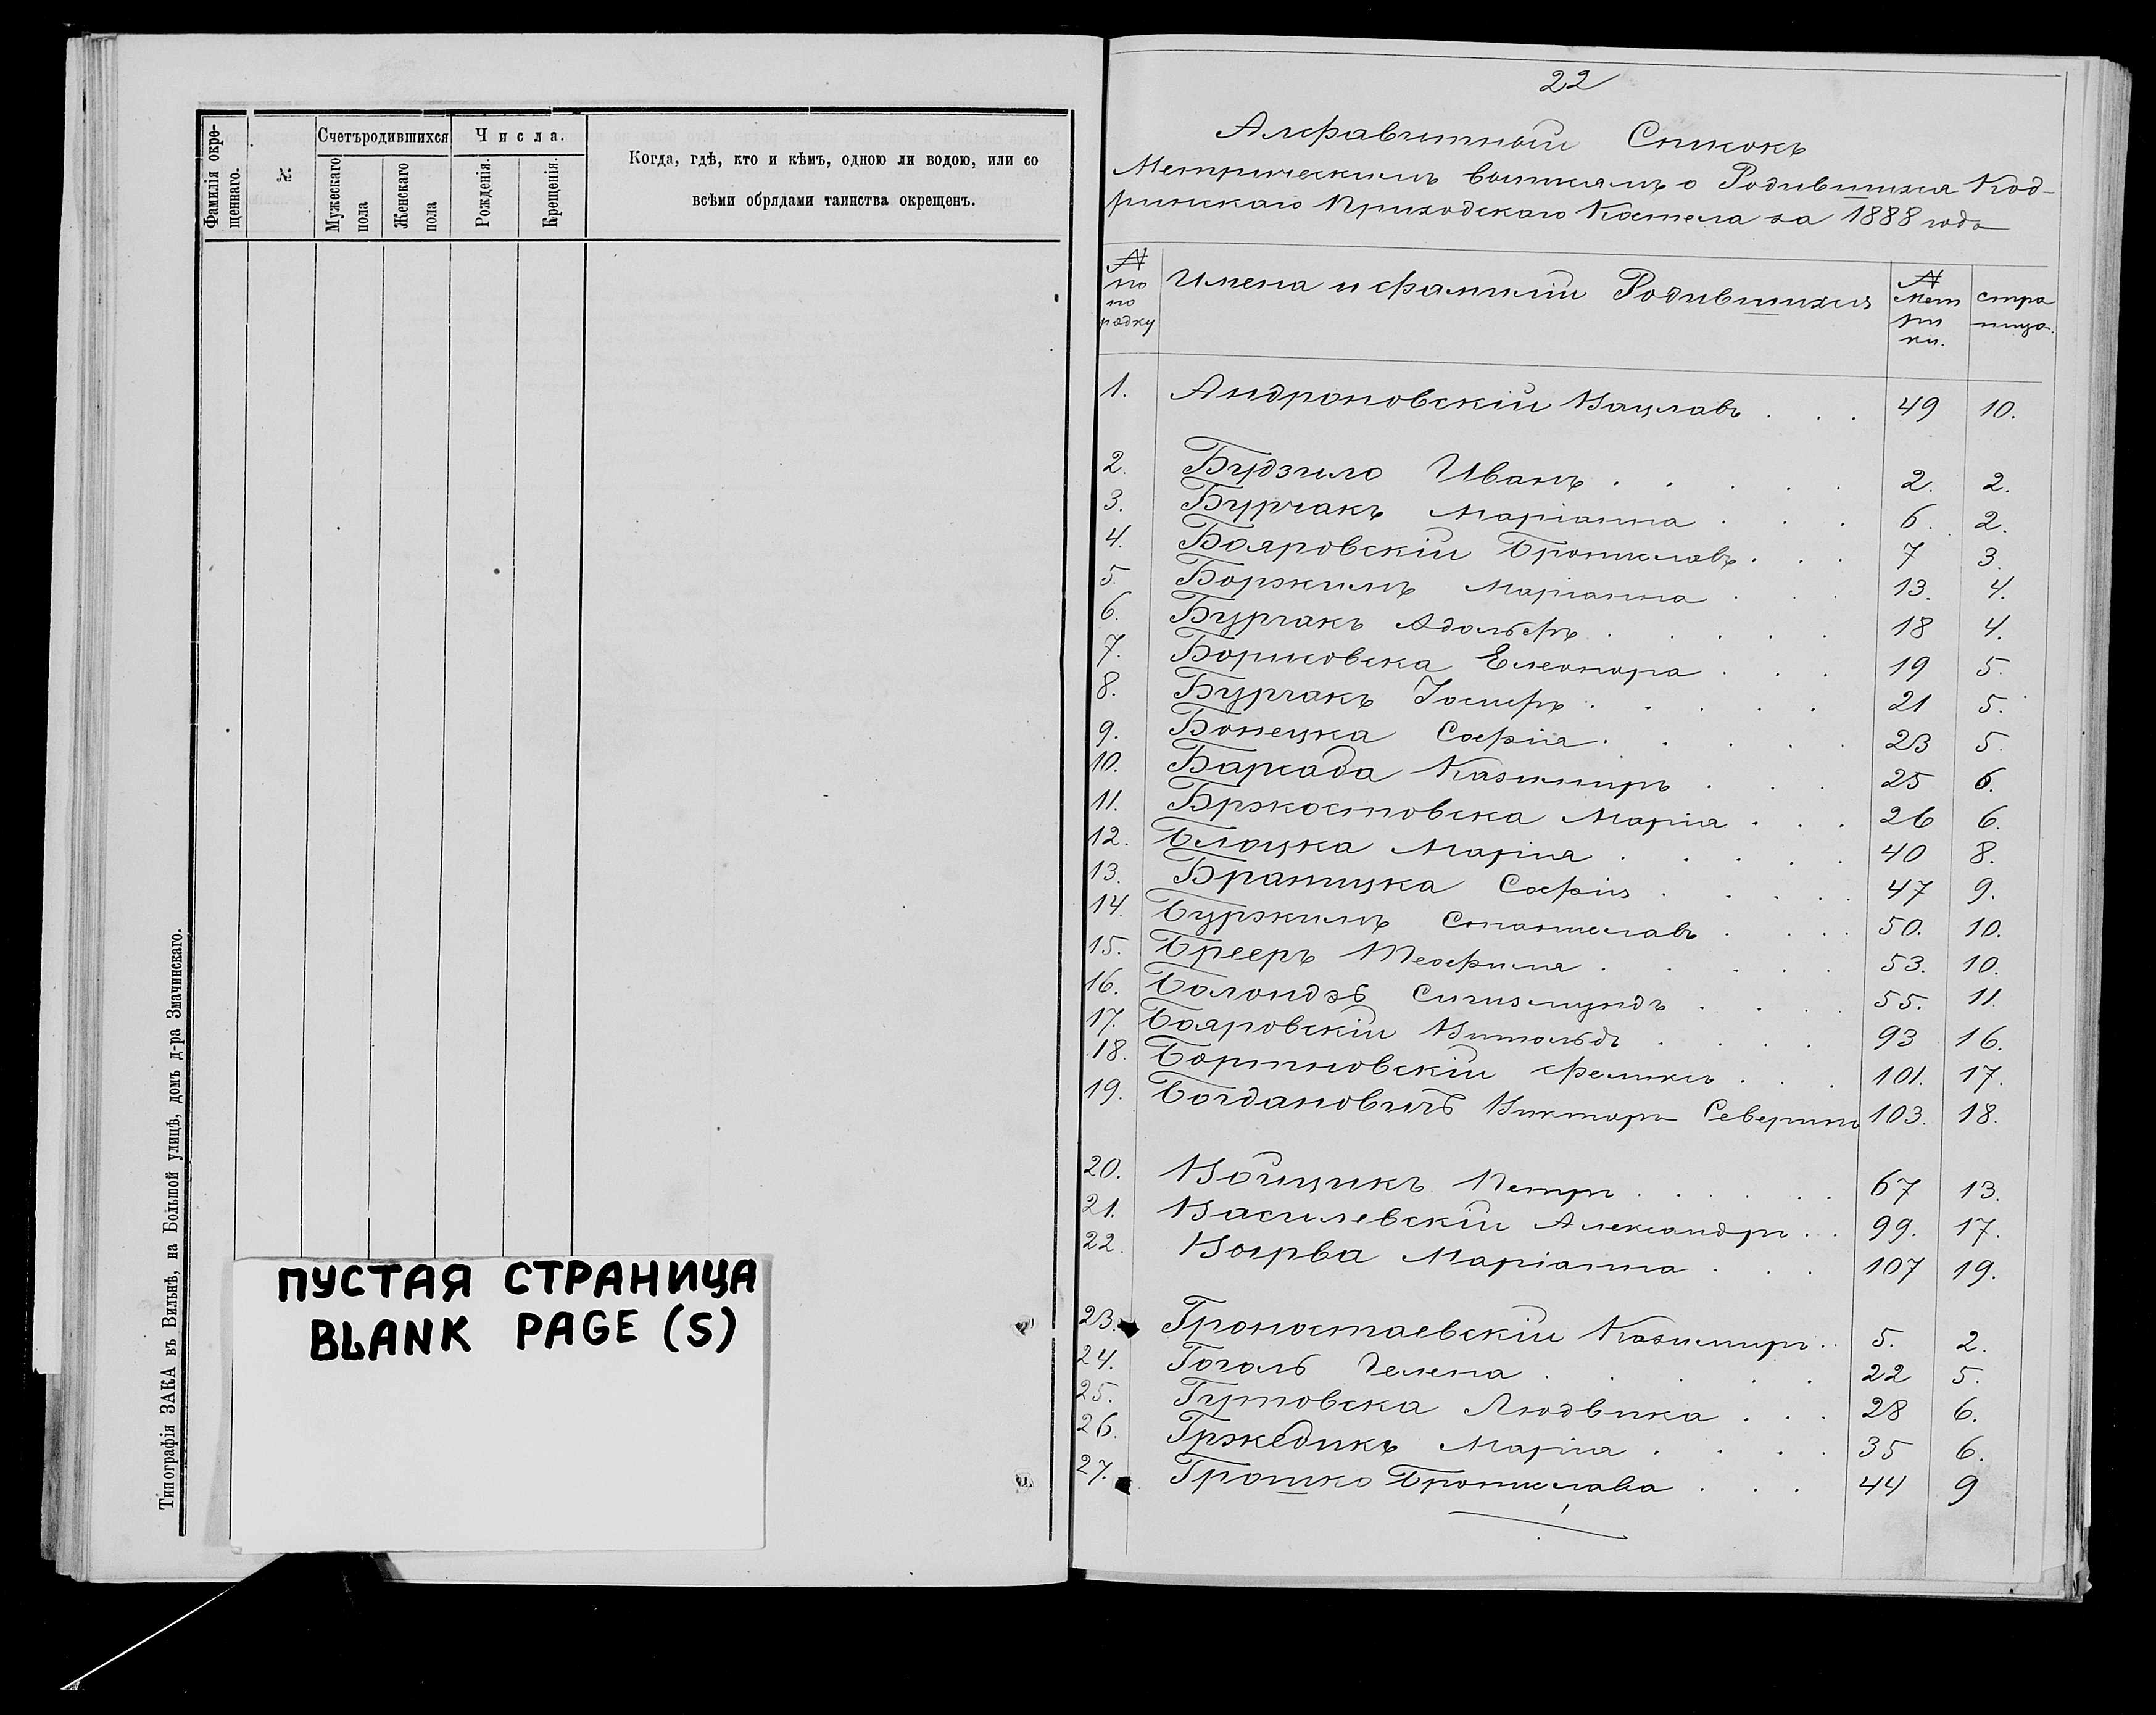 Фамилія окре-
щеннаго.
№
Счетъ родившихся
Мужескаго
пола
Женскаго
пола
Числа.
Рожденія.
Крещенія.
Когда, гдѣ, кто и кѣмъ, одною ли водою, или со
всѣми обрядами таинства окрещенъ.
Типографія ЗАКА въ Вильнѣ, на Большой улицѣ, домъ д-ра Змачинскаго.
ПУСТАЯ СТРАНИЦА
BLANK PAGE (S)
22
Алфавитный Списокъ
Метрическимъ о Родившихся Код-
ринскаго Приходскаго Костела за 1888 годъ
№ по порядку Имена и фамиліи Родившихся № Метрики. страница.
1. Андроновскій Вацлавъ . . . 49 10.
2. Будзило Иванъ . . . . . 2. 2.
3. Бурчакъ Маріанна . . . 6. 2.
4. Бояровскій Брониславъ . . . 7 3.
5. Боржимъ Маріанна . . . 13. 4.
6. Бурчакъ Адольфъ . . . . . 18 4.
7. Борисовска Елеонора . . . 19 5.
8. Бурчакъ Іосифъ . . . . . 21 5.
9. Бонецка Софія . . . . . 23 5.
10. Барсада Казимиръ . . . 25 6.
11. Бржостовска Марія . . . 26 6.
12. Блоцка Марія . . . . . 40 8.
13. Браницка Софія . . . . . 47 9.
14. Буржимъ Станиславъ . . . 50. 10.
15. Брееръ Теофиля . . . . . 53. 10.
16. Болондзь Сигизмундъ . . . 55. 11.
17. Бояровскій Витольдъ . . . . 93 16.
18. Бортновскій Феликсъ . . . 101. 17.
19. Богдановичь Викторъ Северинъ 103. 18.
20. Войцикъ Петръ . . . . . . 67 13.
21. Василевскій Александръ . . 99. 17.
22. Маріанна . . . 107 19.
23. Гроностаевскій Казимиръ . . 5. 2.
24. Гоголь Гелена . . . . . 22 5.
25. Гутовска Людвика . . . 28 6.
26. Гржедикъ Марія . . . . 35 6.
27. Грошко Бронислава . . . 44 9